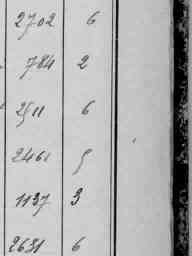 2702 6
784 2
2511 6
2461 5
1137 3
2631 6